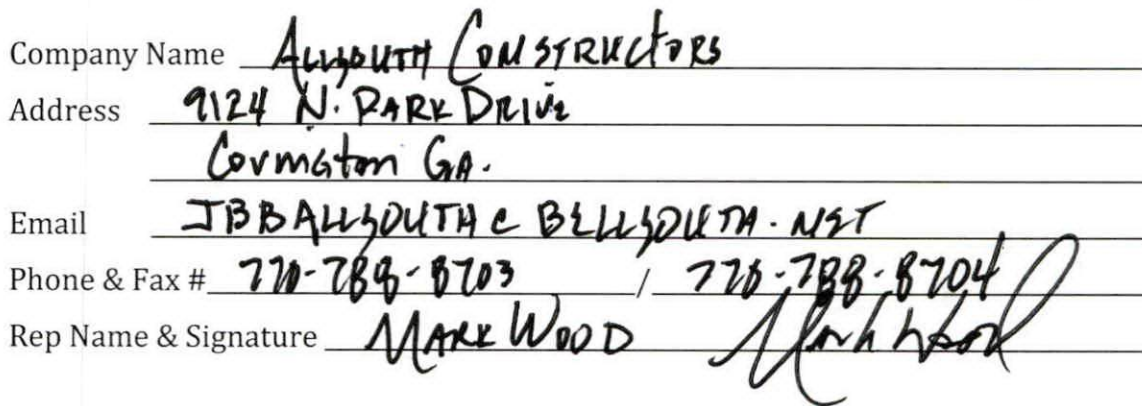 Company Name ALLSOUTH CONSTRUCTORS
Address 9124 N. PARK DRIVE
Covington GA.
Email JBBALLSOUTH@BELLSOUTH.NET
Phone & Fax # 770-788-8703 / 770-788-8704
Rep Name & Signature MARK WOOD Mark Wood